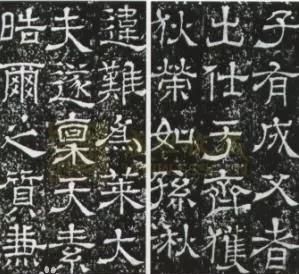 子有成父者
出仕于齊獲
狄榮如孫秋
違難爲萊大
夫遂稟天素
皓爾之質兼